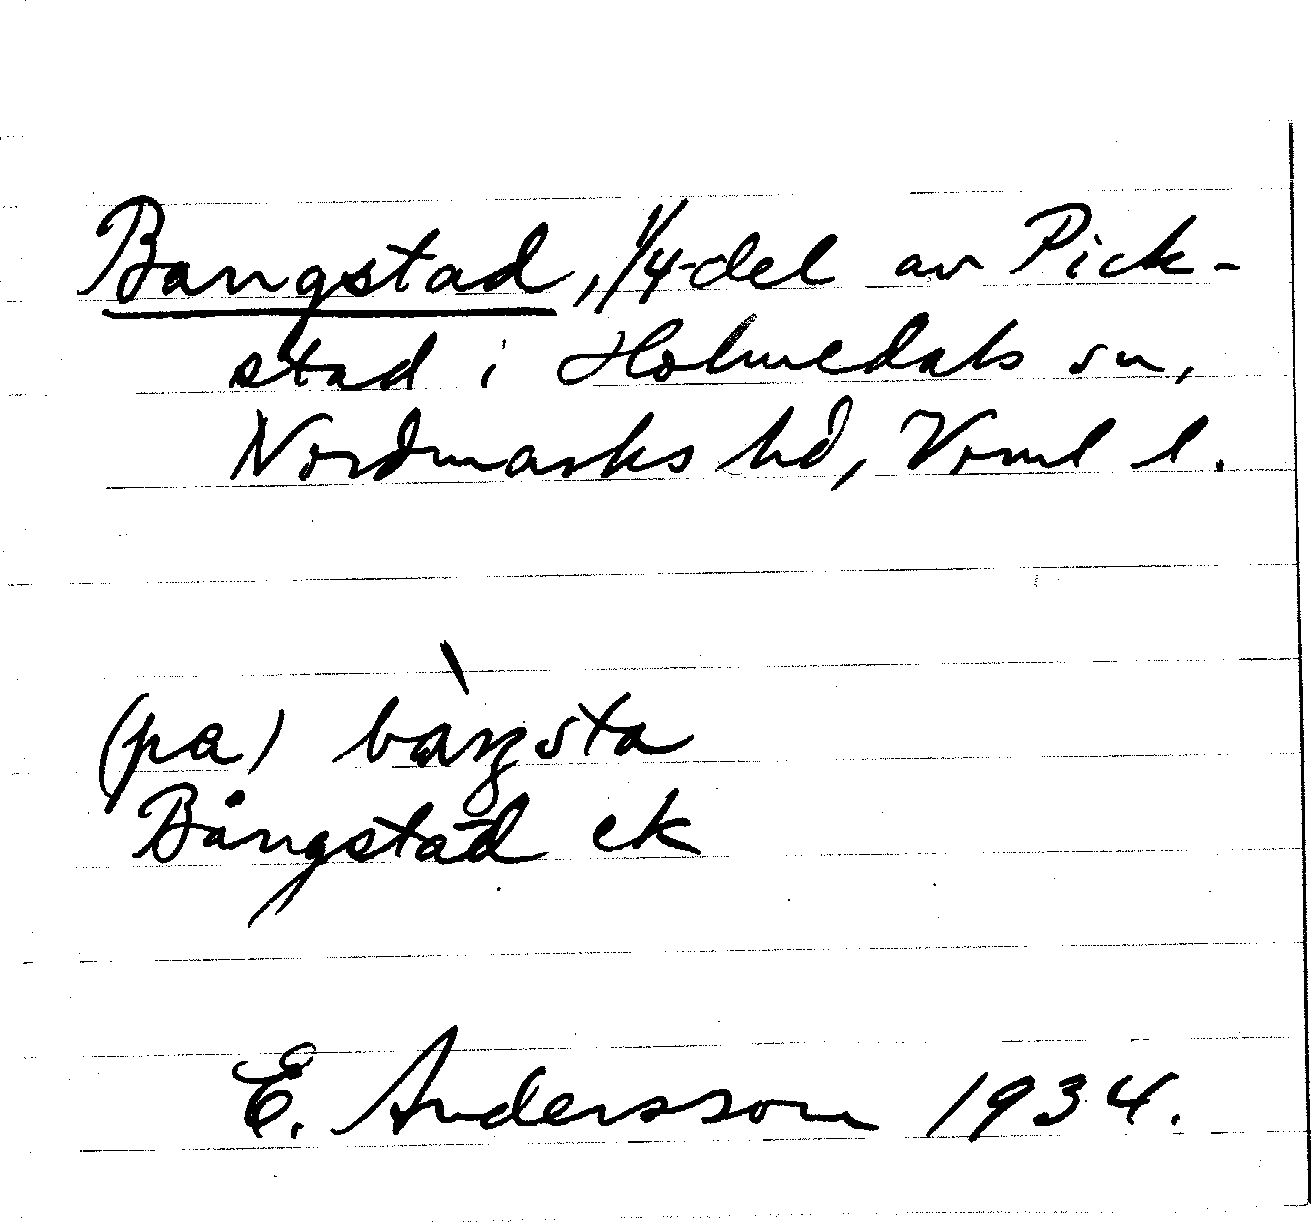 Bangstad, 1/4-del av Pick-
stad i Holmedals sn,
Nordmarks hd, Vrml l.
(pa) bàŋsta
Bångstad ek
E. Andersson 1934.